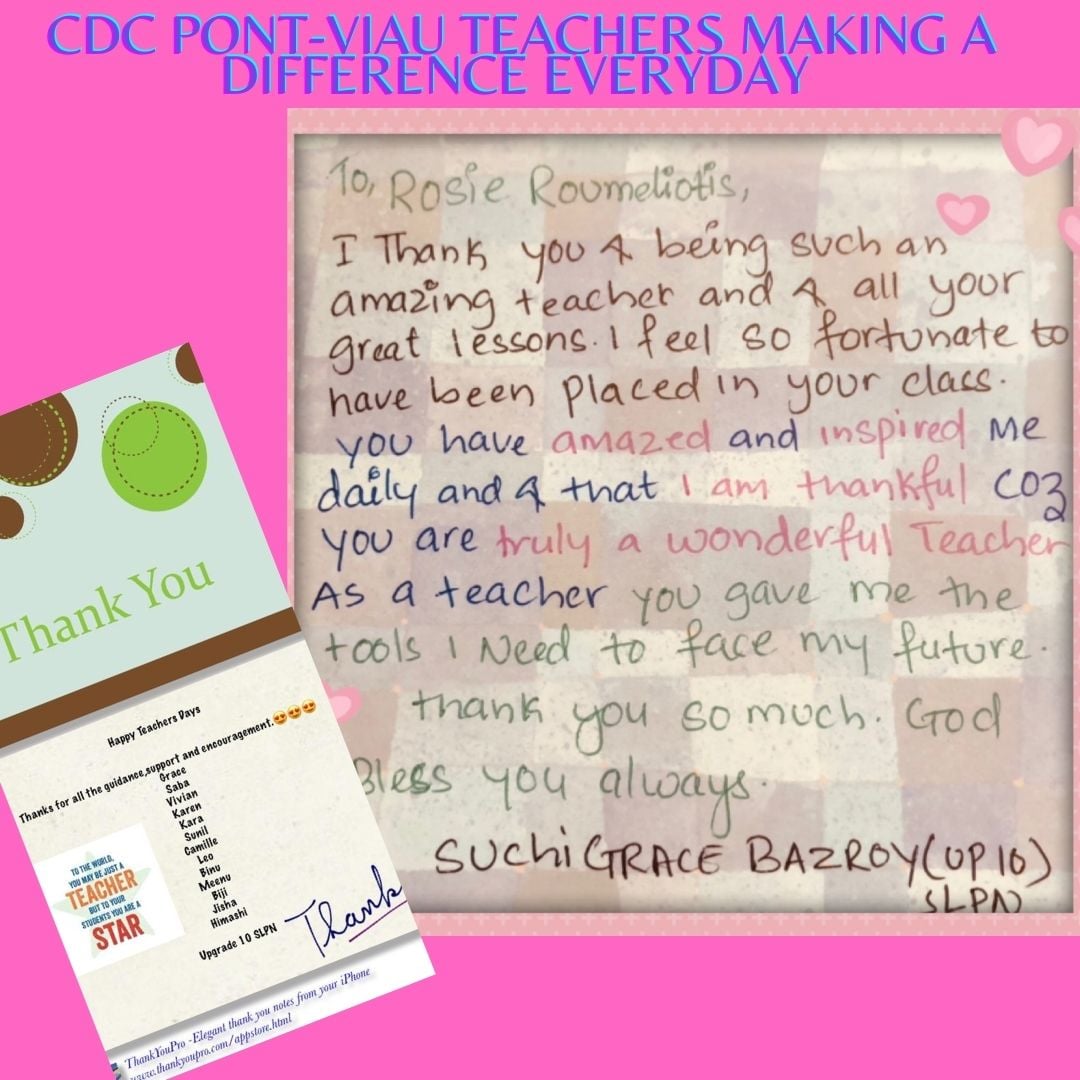 CDC PONT-VIAU TEACHERS MAKING A
DIFFERENCE EVERYDAY
To, Rosie Roumeliotis,
I Thank you 4 being such an
amazing teacher and 4 all your
great lessons. I feel so fortunate to
have been placed in your class.
you have amazed and inspired me
daily and 4 that I am thankful COZ
you are truly a wonderful Teacher
As a teacher you gave me the
tools I Need to face my future.
thank you so much. God
Bless you always.
SUCHi GRACE BAZROY (UP 10)
SLPN
Thank You
Happy Teachers Days
Thanks for all the guidance,support and encouragement.😍😍😍
Grace
Saba
Vivian
Karen
Kara
Sunil
Camille
Leo
Binu
Meenu
Biji
Jisha
Himashi
Upgrade 10 SLPN
TO THE WORLD,
YOU MAY BE JUST A
TEACHER
BUT TO YOUR
STUDENTS YOU ARE A
STAR
Thank
ThankYouPro -Elegant thank you notes from your iPhone
www.thankyoupro.com/appstore.html